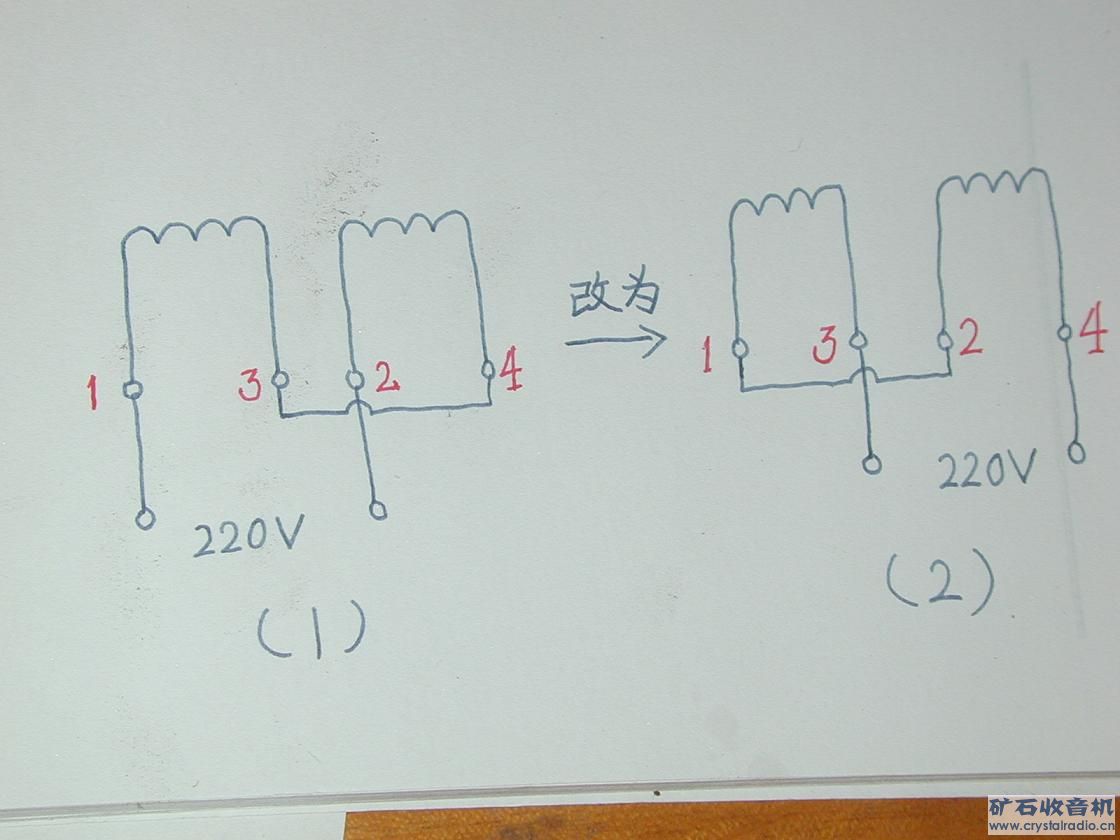 改为
1 3 2 4
1 3 2 4
220V
220V
(1)
(2)
矿石收音机
www.crystalradio.cn